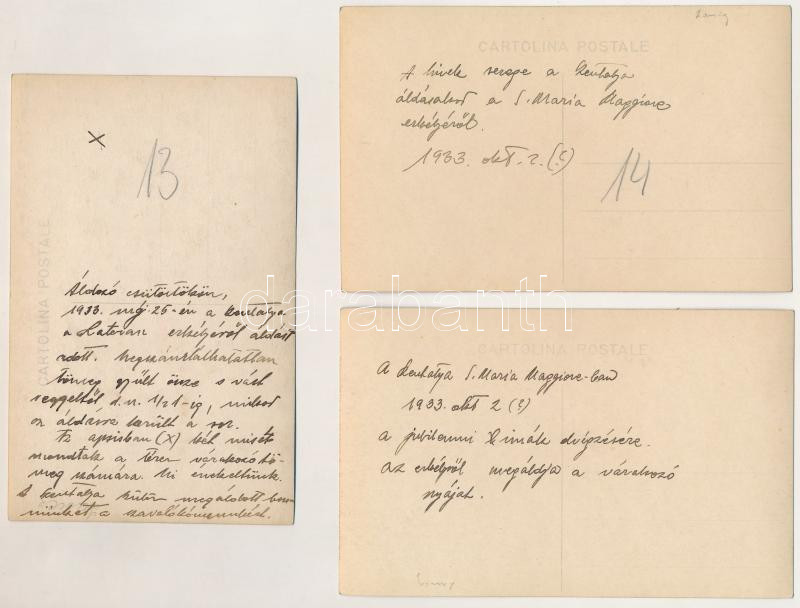 X
13
CARTOLINA POSTALE
Áldozó csütörtökön,
1933. máj. 25-én a Szentatya
a Laterán erkélyéről áldást
adott. Megszámlálhatatlan
tömeg gyűlt össze s várt
reggeltől d.u. 1/2 1-ig, mikor
az áldásra került a sor.
Az apsisban (X) kél misét
mondtak a téren várakozó tö-
meg számára. Mi énekeltünk.
A Szentatya külön megáldott ben-
nünket a
CARTOLINA POSTALE
A hívek serege a Szentatya
áldásakor a S. Maria Maggiore
erkélyéről.
1933. okt. 2. (?)
14
CARTOLINA POSTALE
A Szentatya S. Maria Maggiore-ban
1933. okt 2 (?)
a jubileumi imák elvégzésére.
az erkélyről megáldja a várakozó
nyáját.
darabanth